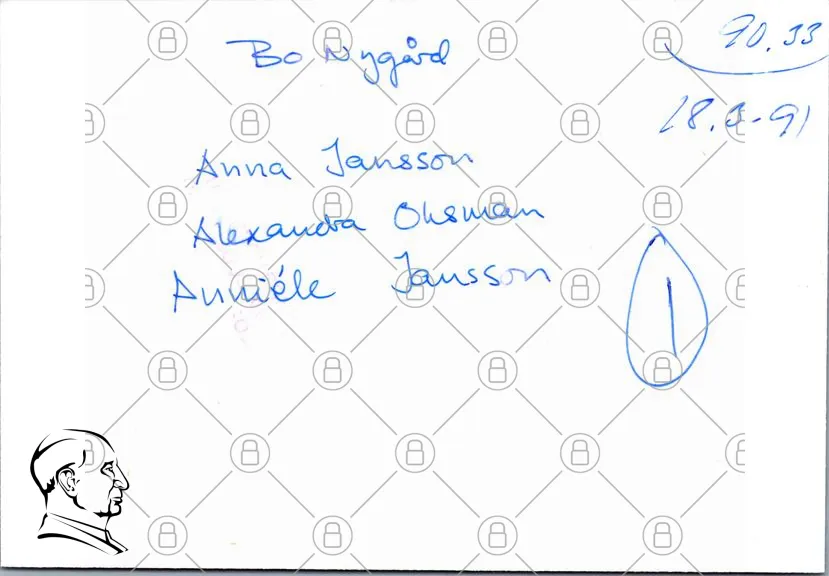 Bo Nygård
90.33
28.3-91
Anna Jansson
Alexandra Ohsman
Anniéle Jansson
1